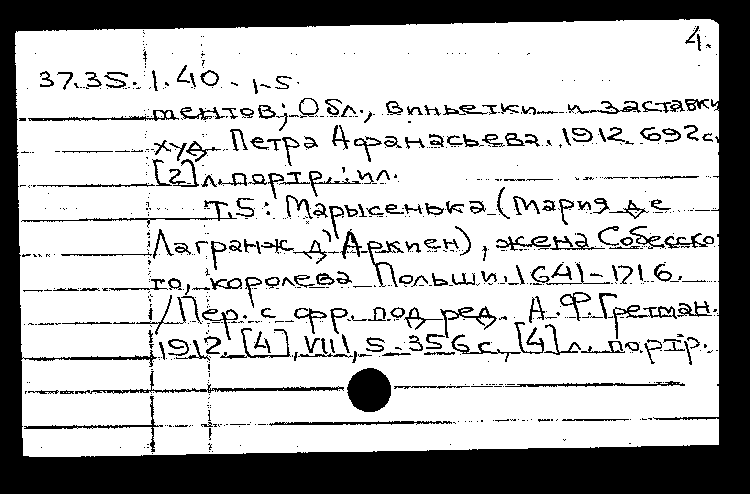 4.
37.35.1.40.1-5.
ментов; Обл., виньетки и заставки
худ. Петра Афанасьева. 1912. 692с.,
[2]л. портр.: ил.
Т.5: Марысенька (Мария де
Лагранж д'Аркиен), жена Собесско-
го, королева Польши. 1641-1716.
/Пер. с фр. под ред. А.Ф.Гретман.
1912. [4], VIII, 5-356 с., [4] л. портр.